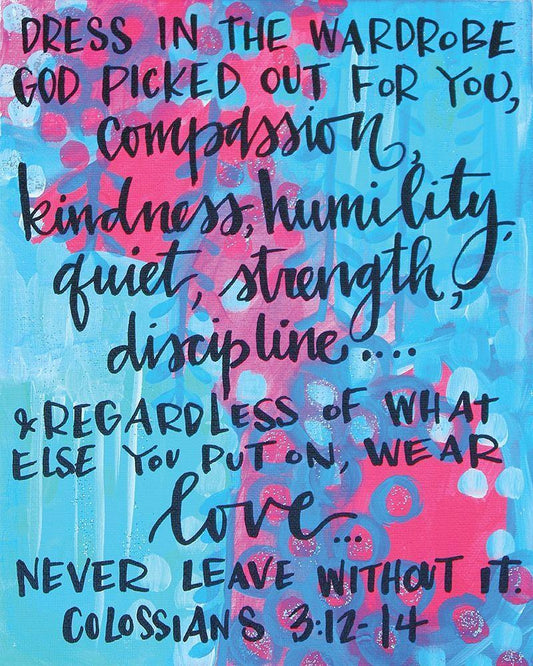 DRESS IN THE WARDROBE
GOD PICKED OUT FOR YOU,
compassion,
kindness, humility,
quiet, strength,
discipline....
& REGARDLESS OF WHAT
ELSE YOU PUT ON, WEAR
love...
NEVER LEAVE WITHOUT IT.
COLOSSIANS 3:12-14